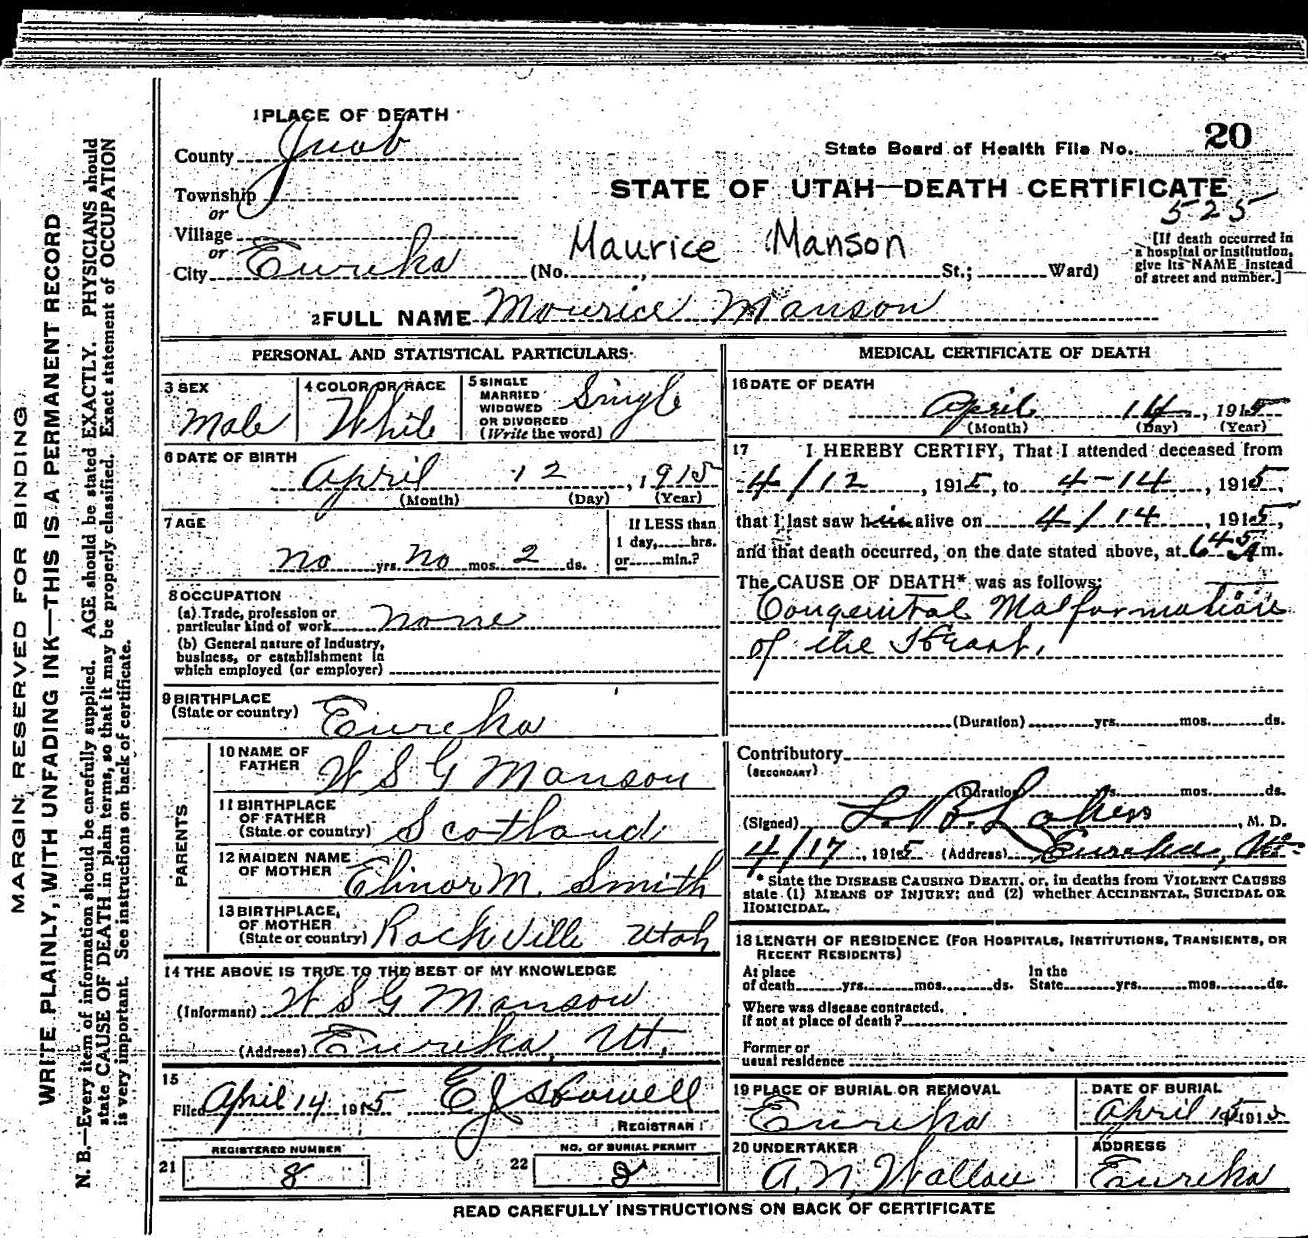 MARGIN RESERVED FOR BINDING
WRITE PLAINLY, WITH UNFADING INK—THIS IS A PERMANENT RECORD
N. B.—Every item of information should be carefully supplied. AGE should be stated EXACTLY. PHYSICIANS should
state CAUSE OF DEATH in plain terms, so that it may be properly classified. Exact statement of OCCUPATION
is very important. See instructions on back of certificate.
1 PLACE OF DEATH
County Juab
Township
or
Village
or
City Eureka (No. St.; Ward)
State Board of Health File No. 20
STATE OF UTAH—DEATH CERTIFICATE
525
Maurice Manson
[If death occurred in
a hospital or institution,
give its NAME instead
of street and number.]
2 FULL NAME Mourice Manson
PERSONAL AND STATISTICAL PARTICULARS
3 SEX
Male
4 COLOR OR RACE
White
5 SINGLE
MARRIED
WIDOWED
OR DIVORCED
(Write the word)
Single
6 DATE OF BIRTH
April 12, 1915
(Month) (Day) (Year)
7 AGE
no yrs. no mos. 2 ds.
If LESS than
1 day, hrs.
or min.?
8 OCCUPATION
(a) Trade, profession or
particular kind of work none
(b) General nature of Industry,
business, or establishment in
which employed (or employer)
9 BIRTHPLACE
(State or country) Eureka
PARENTS
10 NAME OF
FATHER W S G Manson
11 BIRTHPLACE
OF FATHER
(State or country) Scotland
12 MAIDEN NAME
OF MOTHER Elinor M. Smith
13 BIRTHPLACE,
OF MOTHER
(State or country) Rockville Utah
14 THE ABOVE IS TRUE TO THE BEST OF MY KNOWLEDGE
(Informant) W S G Manson
(Address) Eureka, Ut.
15
Filed April 14 1915 E J Howell
REGISTRAR
REGISTERED NUMBER
21 8
NO. OF BURIAL PERMIT
22 8
MEDICAL CERTIFICATE OF DEATH
16 DATE OF DEATH
April 14, 1915
(Month) (Day) (Year)
17 I HEREBY CERTIFY, That I attended deceased from
4/12, 1915, to 4-14, 1915,
that I last saw him alive on 4/14, 1915,
and that death occurred, on the date stated above, at 6 45 A m.
The CAUSE OF DEATH* was as follows:
Congenital Malformation
of the Heart.
(Duration) yrs. mos. ds.
Contributory
(SECONDARY)
(Duration) yrs. mos. ds.
(Signed) L. B. Laker, M. D.
4/17, 1915 (Address) Eureka, Ut.
* State the DISEASE CAUSING DEATH, or, in deaths from VIOLENT CAUSES
state (1) MEANS OF INJURY; and (2) whether ACCIDENTAL, SUICIDAL OR
HOMICIDAL.
18 LENGTH OF RESIDENCE (FOR HOSPITALS, INSTITUTIONS, TRANSIENTS, OR
RECENT RESIDENTS)
At place
of death yrs. mos. ds.
In the
State yrs. mos. ds.
Where was disease contracted,
if not at place of death?
Former or
usual residence
19 PLACE OF BURIAL OR REMOVAL
Eureka
DATE OF BURIAL
April 15 1915
20 UNDERTAKER
A. N. Wallace
ADDRESS
Eureka
READ CAREFULLY INSTRUCTIONS ON BACK OF CERTIFICATE